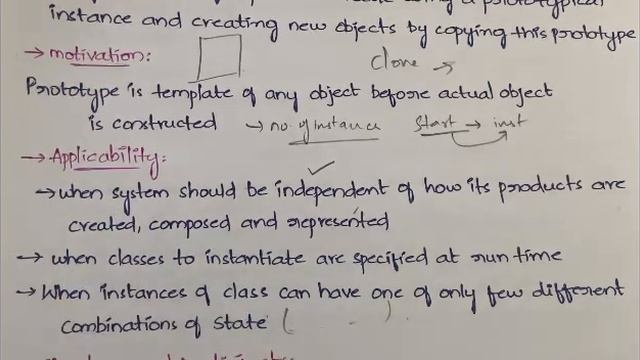 instance and creating new objects by copying this prototype
→ motivation:
clone →
Prototype is template of any object before actual object
is constructed → no. of instance start → inst
→ Applicability:
→ when system should be independent of how its products are
created, composed and represented
→ when classes to instantiate are specified at run time
→ When instances of class can have one of only few different
combinations of state